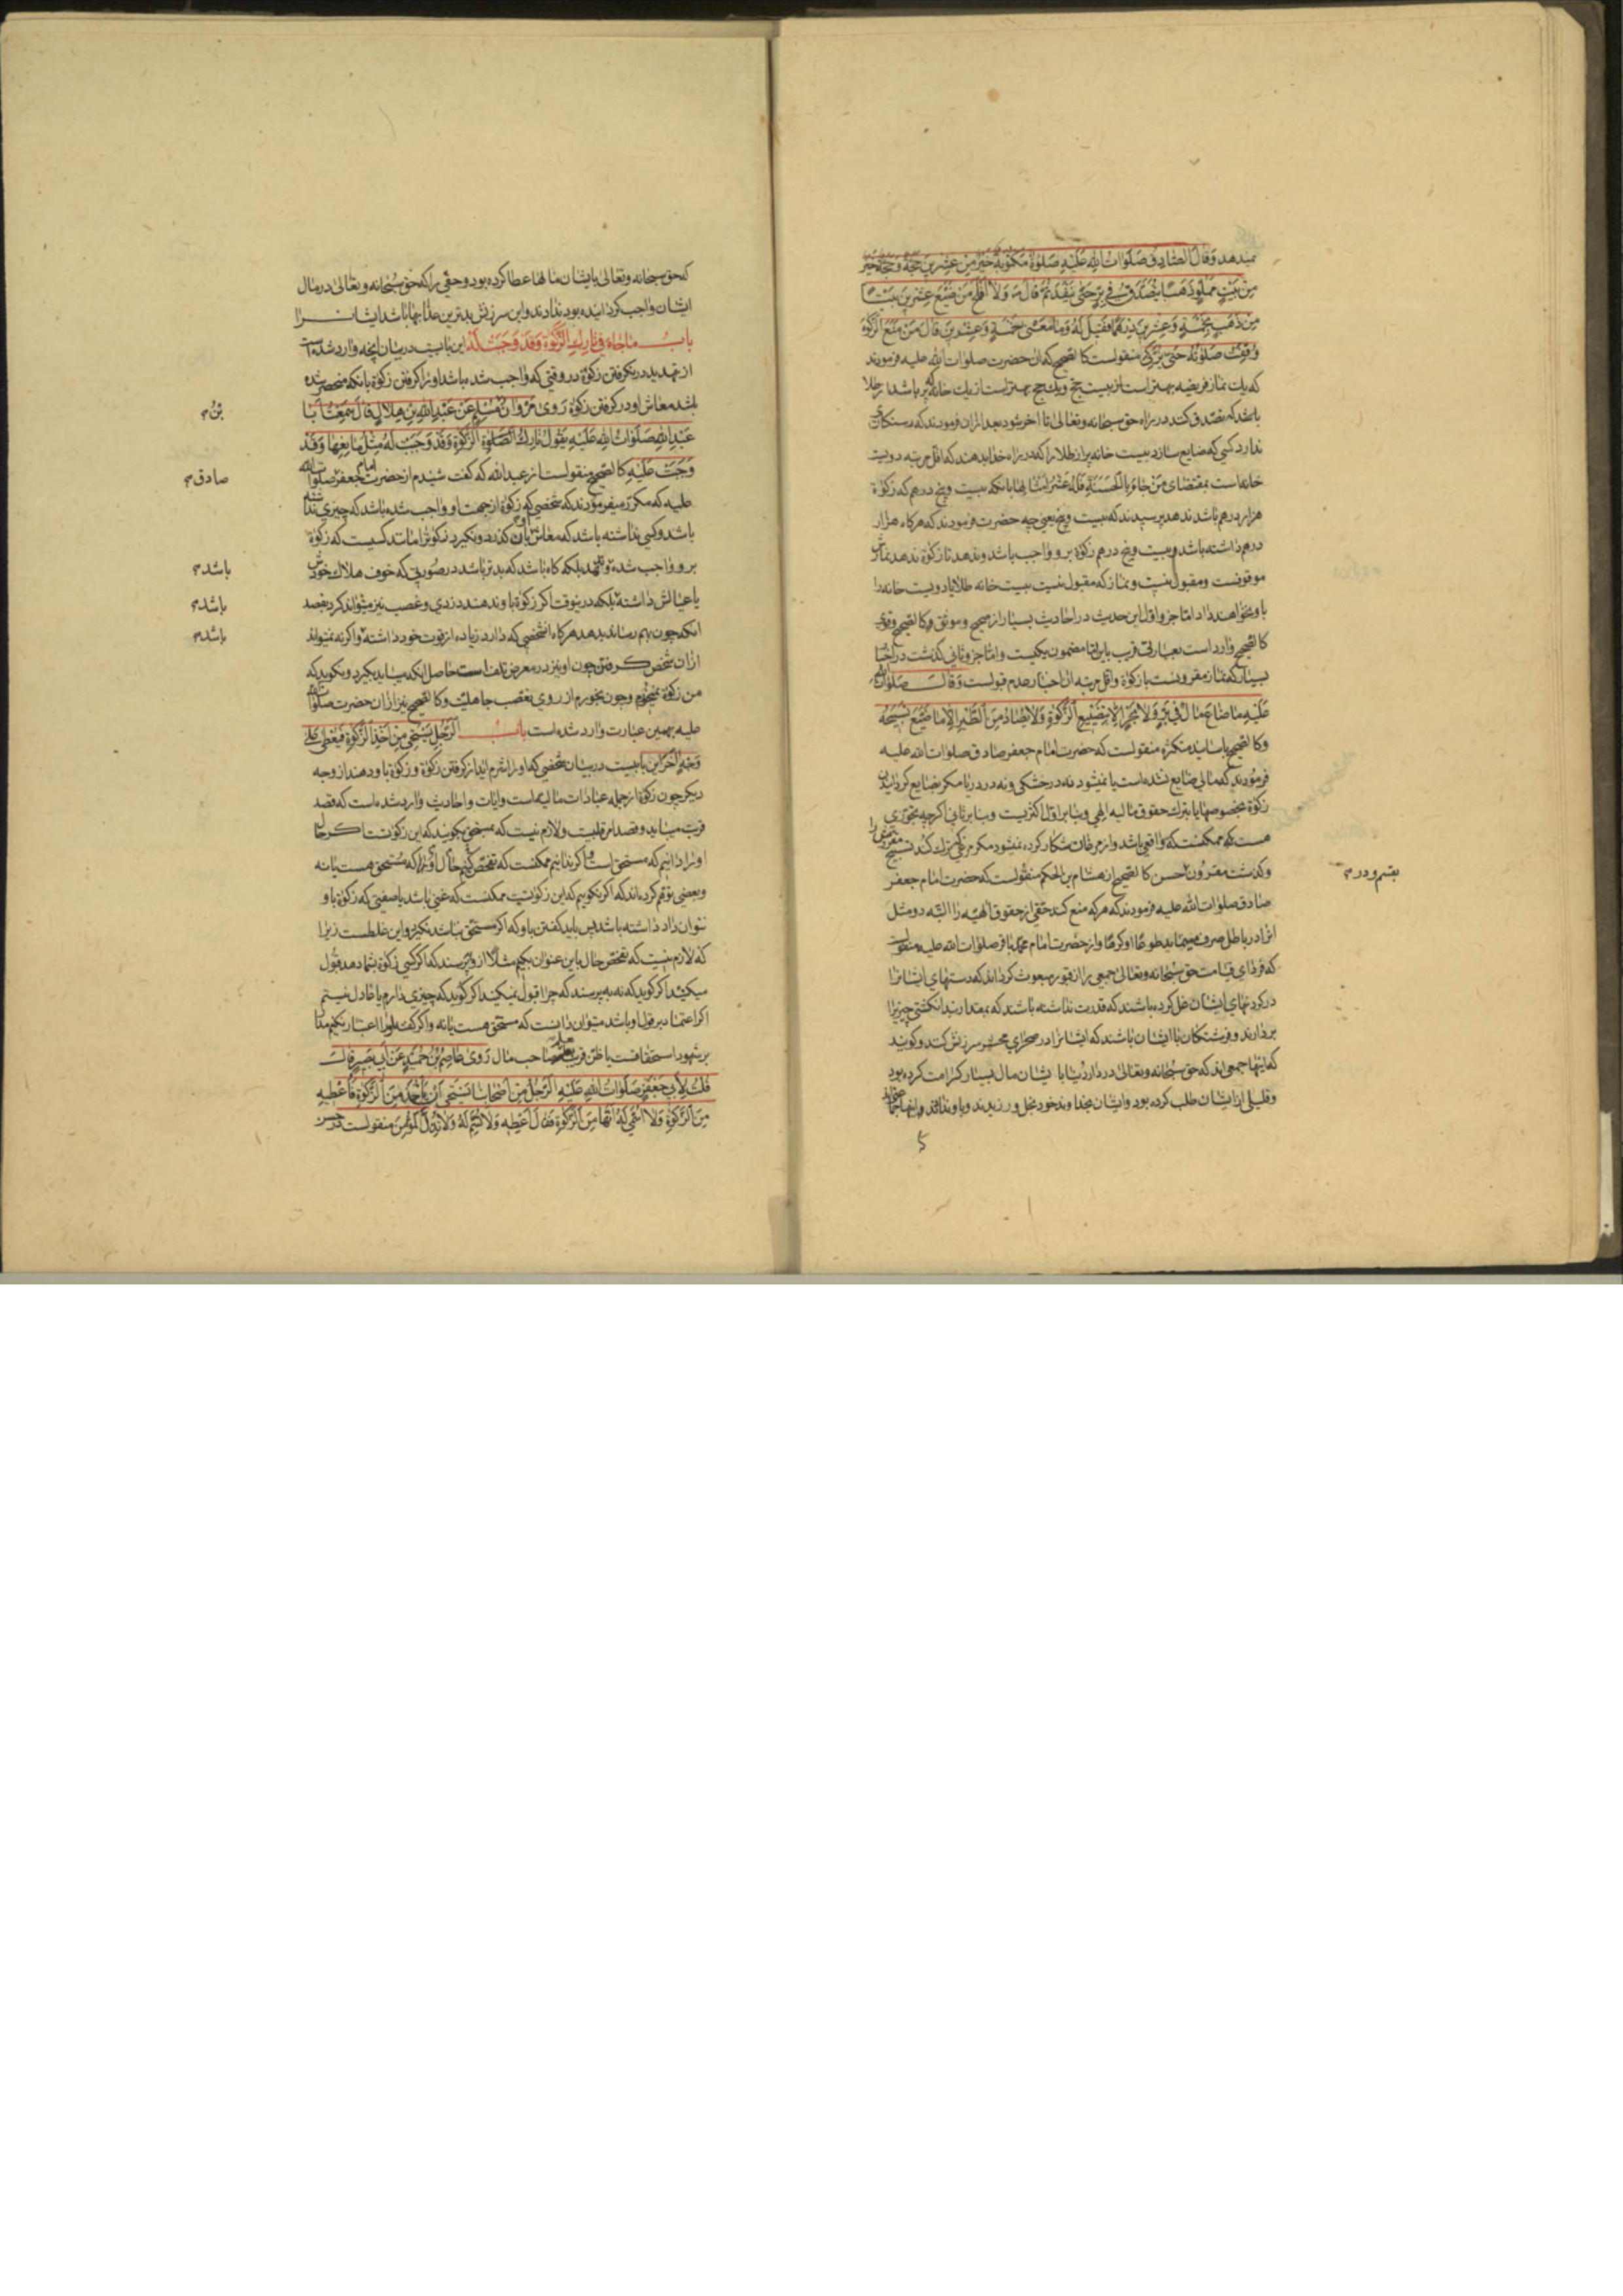 نمیدهد وَقالَ الصّادِقُ صَلَواتُ اللهِ عَلَیْهِ صَلوٰةٌ مَکْتوبَةٌ خَیْرٌ مِنْ عِشْرینَ حَجَّةً وَحَجَّةٌ خَیْرٌ
مِنْ بَیْتٍ مَمْلُوٍّ ذَهَبًا یَتَصَدَّقُ فی بِرٍّ حَتّی یَنْفَدَ ثُمَّ قالَ وَلا أفْلَحَ مَنْ ضَیَّعَ عِشْرینَ بَیْتًا
مِنْ ذَهَبٍ بِخَمْسَةٍ وَعِشْرینَ دِرْهَمًا فَقیلَ لَهُ وَما مَعْنی خَمْسَةٍ وَعِشْرینَ قالَ مَنْ مَنَعَ الزَّکوٰةَ
وُقِفَتْ صَلوٰتُهُ حَتّی یُزَکّی منقولست کالصحیح که آن حضرت صلوات الله علیه فرمودند
که یك نماز فریضه بهتر است از بیست حج ویك حج بهتر است از یك خانه که پر باشد از طلا
باشد که تصدق کند در راه حق سبحانه وتعالی تا آخر شود بعد از آن فرمودند که رستکاری
ندارد کسی که ضایع سازد بیست خانه پر از طلا را که در راه خدا بدهند که اقل مرتبه دویست
خانه است بمقتضای مَنْ جاءَ بِالْحَسَنَةِ فَلَهُ عَشْرُ أمْثالِها بآنکه بیست وپنج درهم که زکوة
هزار درهم باشد ندهد پرسیدند که بیست وپنج یعنی چه حضرت فرمودند که هرکاه هزار
درهم داشته باشد وبیست وپنج درهم زکوة برو واجب باشد وندهد تا زکوة ندهد نمازش
موقوفست ومقبول نیست ونماز که مقبول نیست بیست خانه طلا یا دویست خانه را
باو نخواهند داد اما جزو اول این حدیث در احادیث بسیار از صحیح وموثق وکالصحیح وقوی
کالصحیح وارد است بعبارتی قریب باین اما مضمون یکیست واما جزو ثانی کذشت در اخبار
بسیار که نماز مقرونست بازکوة واقل مرتبه آن اخبار عدم قبولست وَقالَ صَلَواتُ اللهِ
عَلَیْهِ ما ضاعَ مالٌ فی بَرٍّ وَلا بَحْرٍ إلّا بِتَضْییعِ الزَّکوٰةِ وَلا یُصادُ مِنَ الطَّیْرِ إلّا ما ضَیَّعَ تَسْبیحَهُ
وکالصحیح باسانید متکثره منقولست که حضرت امام جعفر صادق صلوات الله علیه
فرمودند که مالی ضایع نشده است یا نمیشود نه در خشکی ونه در دریا مکر بضایع کردانیدن
زکوة بخصوصها یا بترك حقوق مالیه الهی وبنابر اول اکثریست وبنابر ثانی اکرچه تجوزی
هست که ممکنست که واقعی باشد واز مرغان شکار کرده نمیشود مکر مرغی که ترك کند تسبیح
بقسم ودر م
وکذشت مقرون حسن کالصحیح از هشام بن الحکم منقولست که حضرت امام جعفر
صادق صلوات الله علیه فرمودند که هرکه منع کند حقی از حقوق الهیه را البته دو مثل
آنرا در باطل صرف مینماید طوعًا او کرهًا واز حضرت امام محمد باقر صلوات الله علیه منقولست
که فردای قیامت حق سبحانه وتعالی جمعی را از قبور مبعوث کرداند که دستهای ایشانرا
در کردنهای ایشان غل کرده باشند که قدرت نداشته باشند که بمقدار بند انکشتی چیزیرا
بردارند وفرشتکان با ایشان باشند که ایشانرا در صحرای محشر سرزنش کنند وکویند
که اینها جمعی اند که حق سبحانه وتعالی در دار دنیا بایشان مال بسیار کرامت کرده بود
وقلیلی از ایشان طلب کرده بود وایشان بخداوند خود بخل ورزیدند
که حق سبحانه وتعالی بایشان مالها عطا کرده بود وحقی را که حق سبحانه وتعالی در مال
ایشان واجب کردانیده بود ندادند واین سرزنش بدترین عذابها باشد ایشانرا
بابُ ما جاءَ فی تارِكِ الزَّکوٰةِ وَقَدْ وَجَبَتْ لَهُ این بابیست در بیان آنچه وارد شده است
از تهدید در نکرفتن زکوة در وقتی که واجب شده باشد اورا کرفتن زکوة بآنکه منحصر شده
باشد معاش او در کرفتن زکوة رَوی مَرْوانُ مُسْلِمٍ عَنْ عَبْدِ اللهِ بْنِ هِلالٍ قالَ سَمِعْتُ أبا
بْنُ م
عَبْدِ اللهِ صَلَواتُ اللهِ عَلَیْهِ یَقولُ تارِكُ الزَّکوٰةِ وَقَدْ وَجَبَتْ لَهُ مِثْلُ مانِعِها وَقَدْ
وَجَبَتْ عَلَیْهِ کالصحیح منقولست از عبدالله که کفت شنیدم از حضرت امام جعفر صلوات الله
صادق م
علیه که مکرر میفرمودند که شخصی که زکوة از جهت او واجب شده باشد که چیزی نداشته
باشد وکسی نداشته باشد که معاش او بآن کذرد ونکیرد زکوة را مانند کسیست که زکوة
برو واجب شده وندهد بلکه کاه باشد که بدتر باشد در صورتی که خوف هلاك خودش
باشد م
یا عیالش داشته بلکه درینوقت اکر زکوة باو ندهند دزدی وغصب نیز میتواند کرد بقصد
باشد م
آنکه چون بهم رساند بدهد هرکاه آنشخصی که دارد زیاده از قوت خود داشته واکرنه نمیتواند
باشد م
از آن شخص کرفتن چون او نیز در معرض تلف است حاصل آنکه میباید بکیرد ونکوید که
من زکوة نمیخورم وچون بخورم از روی تعصب جاهلیت وکالصحیح نیز از آن حضرت صلوات الله
علیه بهمین عبارت وارد شده است بابُ الرَّجُلِ یَسْتَحْیی مِنْ أخْذِ الزَّکوٰةِ فَیُعْطی عَلی
وَجْهٍ آخَرَ این بابیست در بیان شخصی که اورا شرم آید از کرفتن زکوة وزکوة باو دهند از وجه
دیکر چون زکوة از جمله عبادات مالیه است وآیات واحادیث وارد شده است که قصد
قربت میباید وقصد امر قلبیست ولازم نیست که بمستحق بکویند که این زکوتست اکر حال
اورا دانیم که مستحق است واکر ندانیم ممکنست که تفحص کنیم حال اورا که مستحق هست یا نه
وبعضی توقم کرده اند که اکر نکوییم که این زکوتست ممکنست که غنی باشد یا صفتی که زکوة باو
نتوان داد داشته باشد پس باید کفتن باو که اکر مستحق نباشد نکیرد واین غلطست زیرا
که لازم نیست که تفحص حال باین عنوان بکنیم مثلا از او پرسند که اکر کسی زکوة بشما دهد قبول
میکنید اکر کوید که نه پرسند که چرا قبول نمیکنید اکر کوید که چیزی دارم یا عادل نیستم
اکر اعتماد بر قول او باشد میتوان دانست که مستحق هست یا نه
بر شهود استحقاقست یا ظن قریب بعلم صاحب مال رَوی عاصِمُ بْنُ حُمَیْدٍ عَنْ أبی بَصیرٍ قالَ
قُلْتُ لِأبی جَعْفَرٍ صَلَواتُ اللهِ عَلَیْهِ الرَّجُلُ مِنْ أصْحابِنا یَسْتَحْیی أنْ یَأْخُذَ مِنَ الزَّکوٰةِ فَأُعْطیهِ
مِنَ الزَّکوٰةِ وَلا أُسَمّی لَهُ أنَّها مِنَ الزَّکوٰةِ فَقالَ أعْطِهِ وَلا تُسَمِّ لَهُ وَلا تُذِلَّ الْمُؤْمِنَ منقولست در حسن